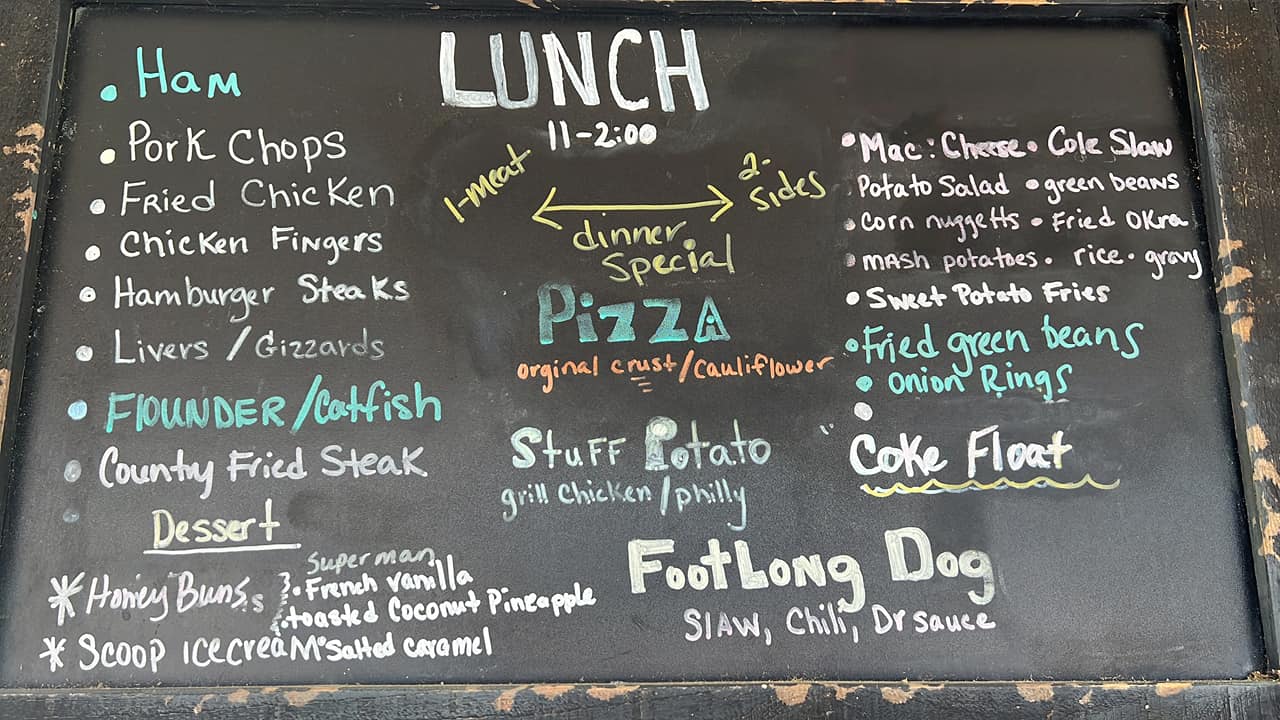 LUNCH
11-2:00
• Ham
• Pork Chops
• Fried Chicken
• Chicken Fingers
• Hamburger Steaks
• Livers / Gizzards
• FlOUNDER/Catfish
• Country Fried Steak
1-Meat
2-Sides
dinner
Special
PizzA
orginal crust/Cauliflower
Stuff Potato
grill Chicken/philly
FootLong Dog
SlAW, Chili, Dr sauce
• Mac : Cheese • Cole Slaw
Potato Salad • green beans
• Corn nuggetts • Fried OKra
• MASH potatoes • rice • gravy
• Sweet Potato Fries
• Fried green beans
• Onion Rings
Coke Float
Dessert
* Honey Buns
Superman
• French vanilla
• toasted Coconut Pineapple
* Scoop icecreaM • Salted caramel